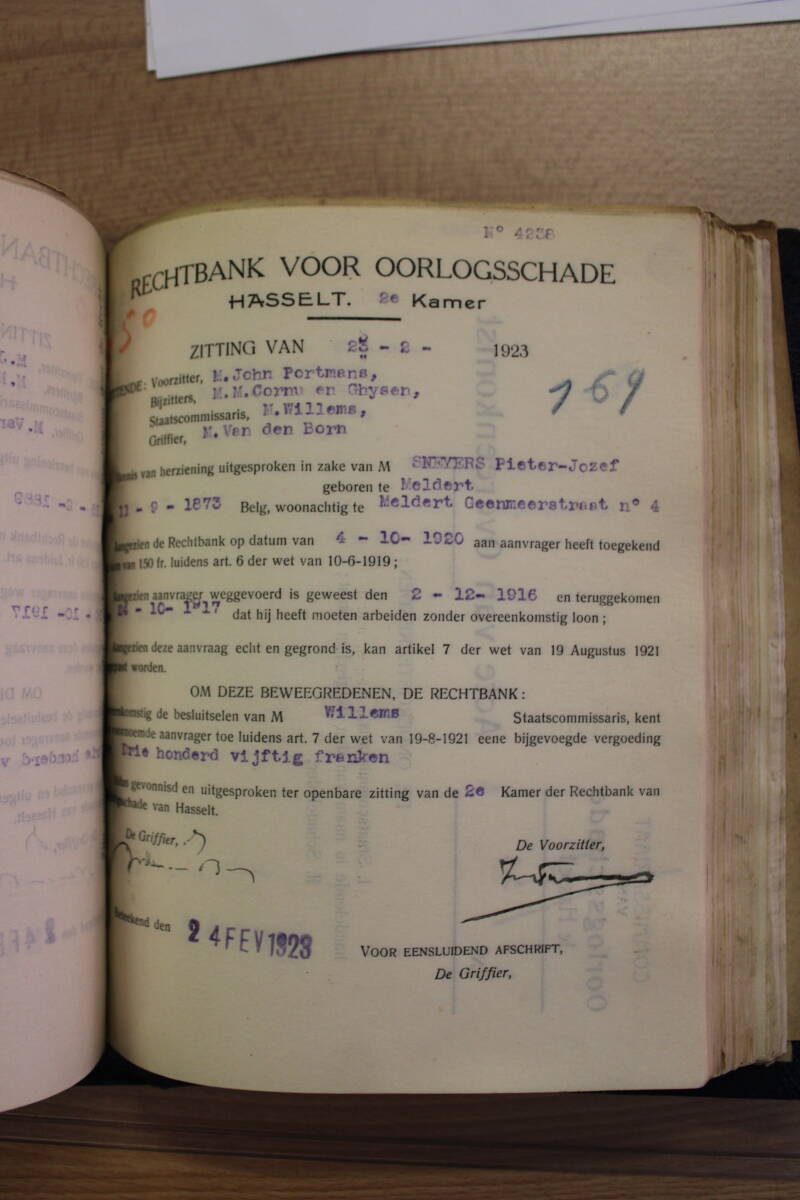 N° 4238
RECHTBANK VOOR OORLOGSSCHADE
HASSELT. 2e Kamer
50
ZITTING VAN 28 - 2 - 1923
169
Voorzitter, M.John Portmans,
Bijzitters, M.M.Cornu en Ghysen,
Staatscommissaris, M.Willems,
Griffier, M.Van den Born
van herziening uitgesproken in zake van M SNEYERS Pieter-Jozef
geboren te Meldert
11 - 9 - 1873 Belg, woonachtig te Meldert Geenmeerstraat n° 4
Aangezien de Rechtbank op datum van 4 - 10- 1920 aan aanvrager heeft toegekend
van 150 fr. luidens art. 6 der wet van 10-6-1919;
Aangezien aanvrager weggevoerd is geweest den 2 - 12- 1916 en teruggekomen
- 10- 1917 dat hij heeft moeten arbeiden zonder overeenkomstig loon;
Aangezien deze aanvraag echt en gegrond is, kan artikel 7 der wet van 19 Augustus 1921
worden.
OM DEZE BEWEEGREDENEN, DE RECHTBANK:
de besluitselen van M Willems Staatscommissaris, kent
aanvrager toe luidens art. 7 der wet van 19-8-1921 eene bijgevoegde vergoeding
Drie honderd vijftig franken
gevonnisd en uitgesproken ter openbare zitting van de 2e Kamer der Rechtbank van
van Hasselt.
De Griffier,
De Voorzitter,
den 24 FEV 1923
VOOR EENSLUIDEND AFSCHRIFT,
De Griffier,